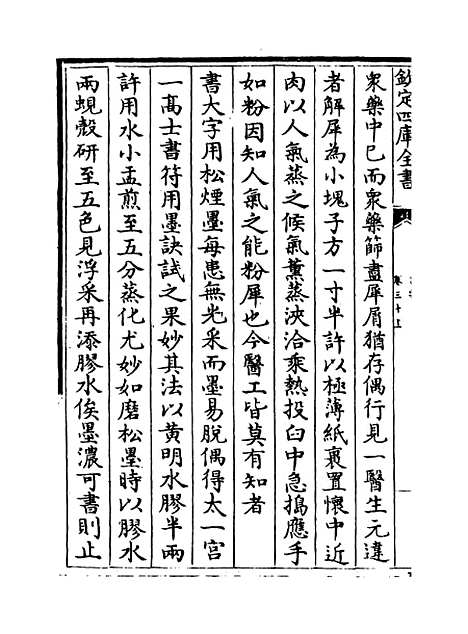 欽定四庫全書
卷三十五
衆藥中已而衆藥篩盡犀屑猶存偶行見一醫生元達
者解犀為小塊子方一寸半許以極薄紙裹置懷中近
肉以人氣蒸之候氣薰蒸浹洽乘熱投臼中急搗應手
如粉因知人氣之能粉犀也今醫工皆莫有知者
書大字用松煙墨每患無光采而墨易脫偶得太一宫
一髙士書符用墨訣試之果妙其法以黄明水膠半兩
許用水小盂煎至五分蒸化尤妙如磨松墨時以膠水
兩蜆殼研至五色見浮采再添膠水俟墨濃可書則止